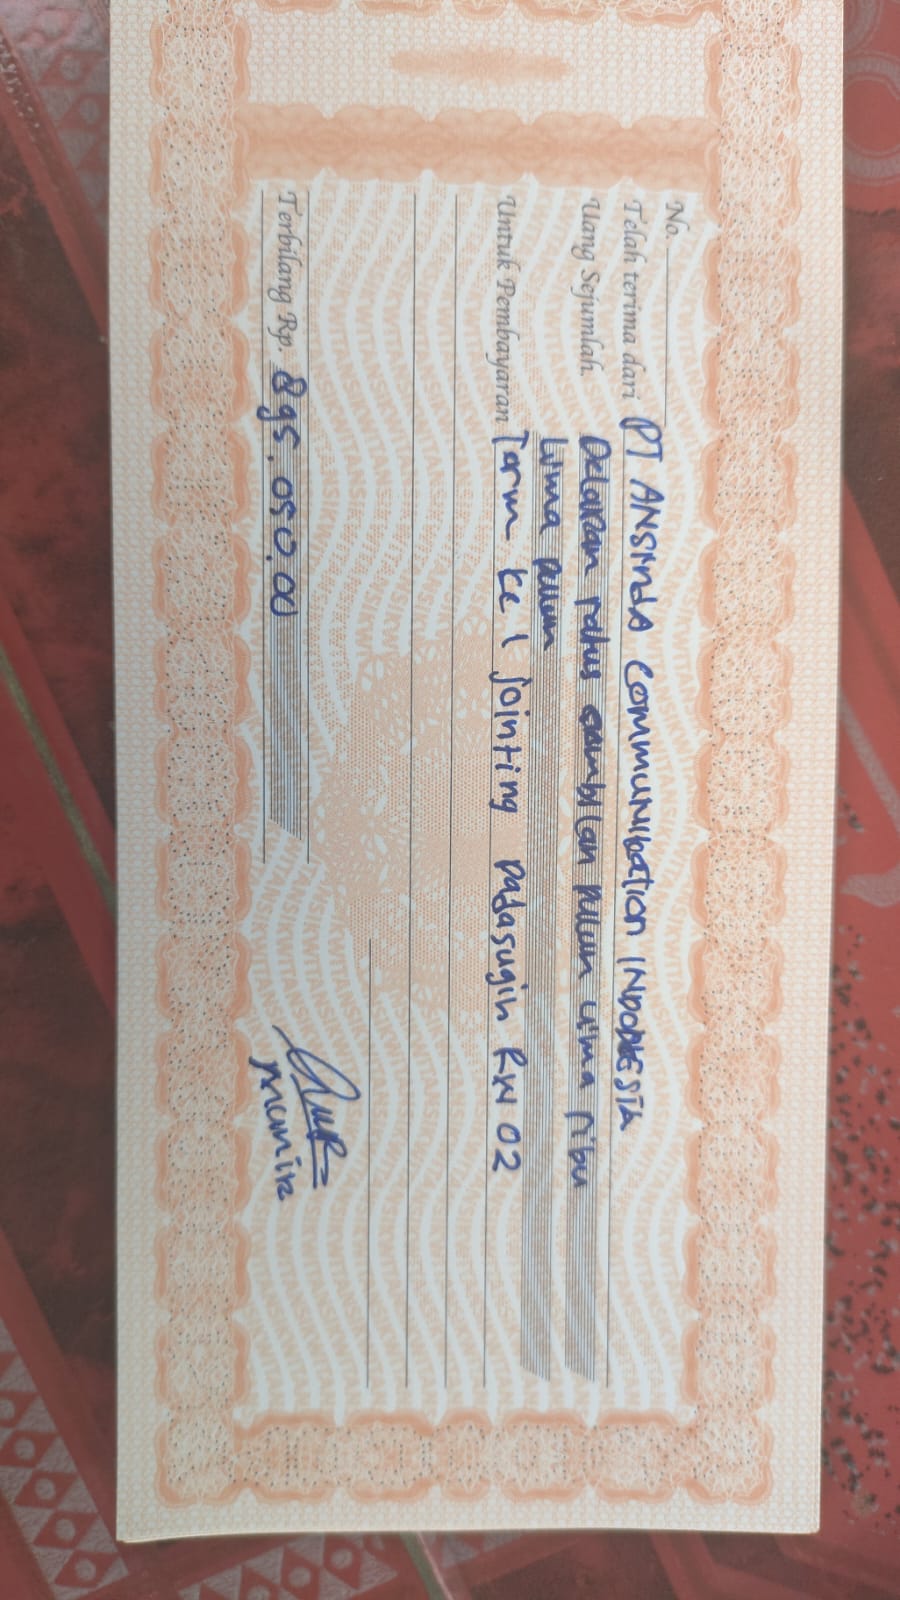 No.
Telah terima dari PT ANSINDA COMMUNICATION INDONESIA
Uang Sejumlah. Delapan ratus sembilan puluh lima ribu
Lima puluh
Untuk Pembayaran Term Ke 1 jointing Padasugih RW 02
Terbilang Rp. 895.050.00
Munir